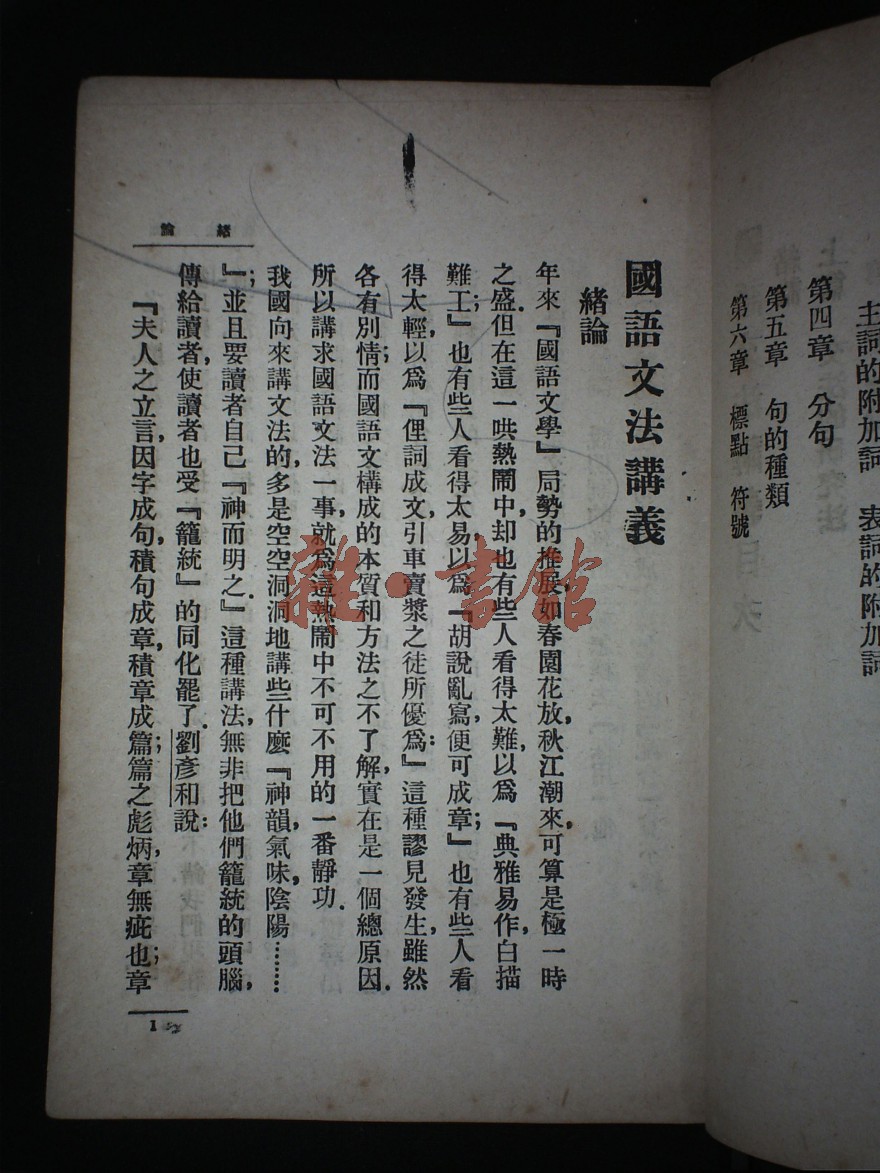 主詞的附加詞　表詞的附加詞
第四章　分句
第五章　句的種類
第六章　標點　符號
國語文法講義
緒論
年來『國語文學』局勢的推展，如春園花放，秋江潮來，可算是極一時
之盛．但在這一哄熱鬧中，却也有些人看得太難，以爲『典雅易作，白描
難工』；也有些人看得太易，以爲『胡說亂寫，便可成章』；也有些人看
得太輕，以爲『俚詞成文，引車賣漿之徒所優爲』：這種謬見發生，雖然
各有別情；而國語文構成的本質和方法之不了解，實在是一個總原因．
所以講求國語文法一事，就爲這熱鬧中不可不用的一番靜功．
我國向來講文法的，多是空空洞洞地講些什麼『神韻，氣味，陰陽………
』；並且要讀者自己『神而明之』．這種講法，無非把他們籠統的頭腦，
傳給讀者，使讀者也受『籠統』的同化罷了．劉彥和說：
『夫人之立言，因字成句，積句成章，積章成篇；篇之彪炳，章無疵也；章
緒論
1
雜·書館